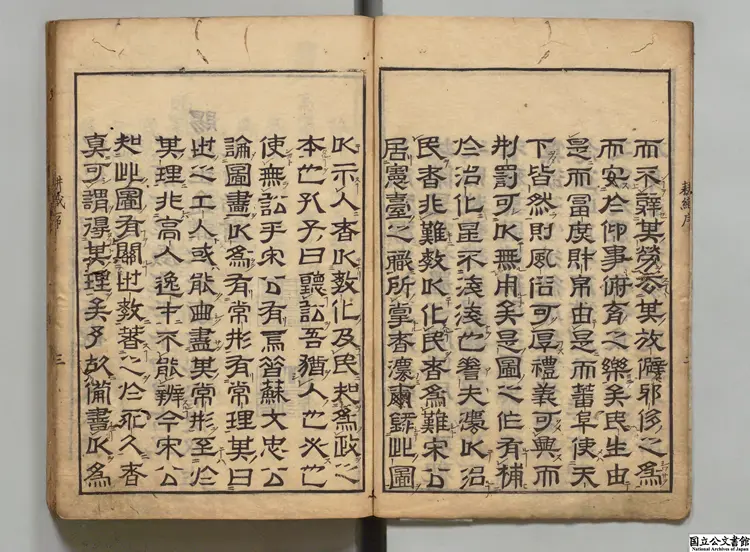 耕織序
而不辭其勞忘其放僻邪侈之爲
而安於仰事俯育之樂矣民生由
是而富庶財帛由是而蓄阜使天
下皆然則風俗可厚禮義可興而
刑罰可以無用矣是圖之作有補
於治化良不淺淺也夫灋以治
民者非難教以化民者爲難宋公
居憲臺之職所掌者灋爾鋟此圖
以示人者以教化及民知爲政之
本也孔子曰聽訟吾猶人也必也
使無訟乎宋公有焉昔蘇文忠公
論圖畫以爲有常形有常理其曰
世之工人或能曲盡其常形至於
其理非高人逸才不能辨今宋公
知此圖有關世教著之於永久者
真可謂得其理矣予故備書以爲
耕織序
三
国立公文書館
National Archives of Japan